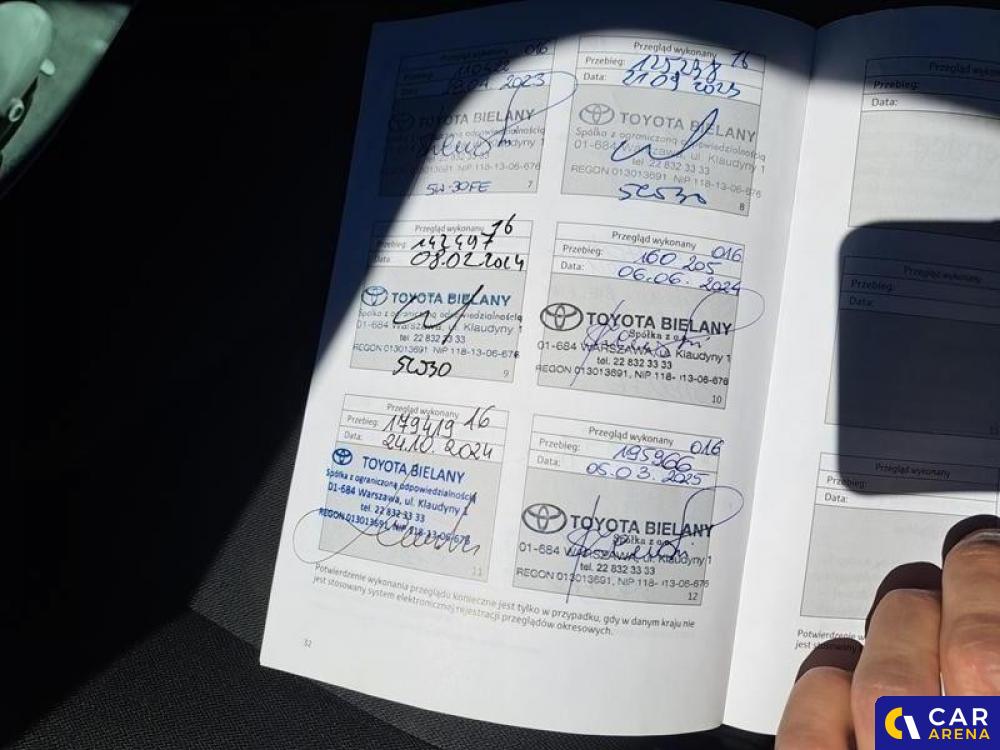 Przegląd wykonany 016
Przebieg:
Data: 2023
TOYOTA BIELANY
Spółka z ograniczoną odpowiedzialnością
Klaudyny 1
22 832 33 33
REGON 013013691 NIP 118-13-06-676
5W-30FE
7
Przegląd wykonany 16
Przebieg: 125238
Data: 21.09 2023
TOYOTA BIELANY
Spółka z ograniczoną odpowiedzialnością
01-684 Warszawa, ul. Klaudyny 1
tel. 22 832 33 33
REGON 013013691 NIP 118-13-06-676
5W30
8
Przegląd wykonany 16
Przebieg: 142497
Data: 08.02.2024
TOYOTA BIELANY
Spółka z ograniczoną odpowiedzialnością
01-684 Warszawa, ul. Klaudyny 1
tel. 22 832 33 33
REGON 013013691 NIP 118-13-06-676
5W30
9
Przegląd wykonany 016
Przebieg: 160 205
Data: 06.06. 2024
TOYOTA BIELANY
Spółka z o.o.
01-684 WARSZAWA, ul. Klaudyny 1
tel. 22 832 33 33
REGON 013013691, NIP 118-113-06-676
10
Przegląd wykonany 16
Przebieg: 179419
Data: 24.10. 2024
TOYOTA BIELANY
Spółka z ograniczoną odpowiedzialnością
01-684 Warszawa, ul. Klaudyny 1
tel. 22 832 33 33
REGON 013013691, NIP 118-13-06-676
11
Przegląd wykonany 016
Przebieg: 195966
Data: 05.03. 2025
TOYOTA BIELANY
Spółka z o.o.
01-684 WARSZAWA, ul. Klaudyny 1
tel. 22 832 33 33
REGON 013013691, NIP 118-113-06-676
12
Potwierdzenie wykonania przeglądu konieczne jest tylko w przypadku, gdy w danym kraju nie
jest stosowany system elektronicznej rejestracji przeglądów okresowych.
32
Przegląd
Przebieg:
Data:
Przegląd wykonany
Przebieg:
Data:
Przegląd wykonany
Przebieg:
Data:
Potwierdzenie
jest stosowany
CAR
ARENA